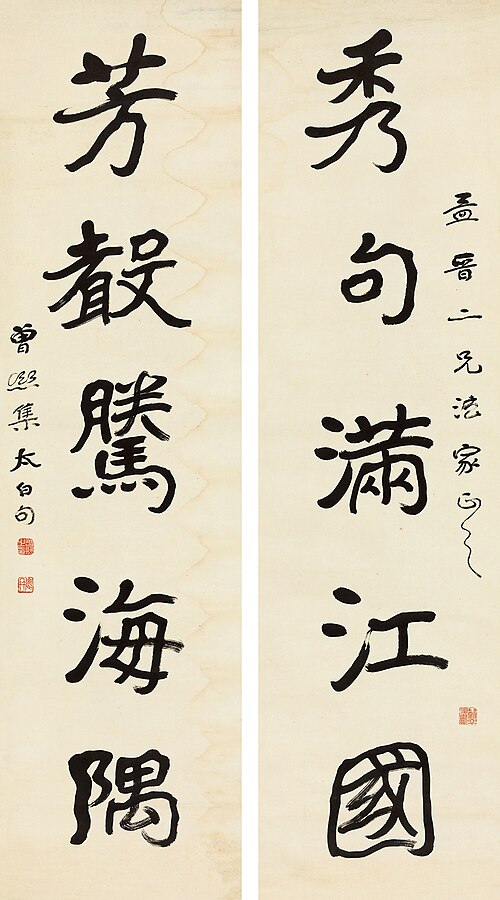 孟晉二兄法家正之
秀句滿江國
芳聲騰海隅
曾熙集太白句